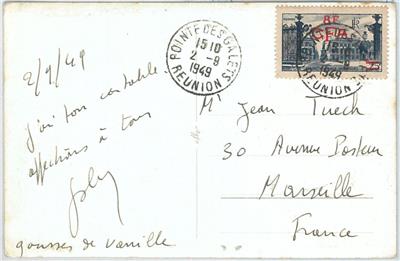 2/9/49
j'ai ton
affections à tous
gousses de vanille
POINTE DES GALETS
15 10
2-9
1949
REUNION
8F
CFA
1949
REUNION
Mr Jean Tuech
30 Avenue Pasteur
Marseille
France